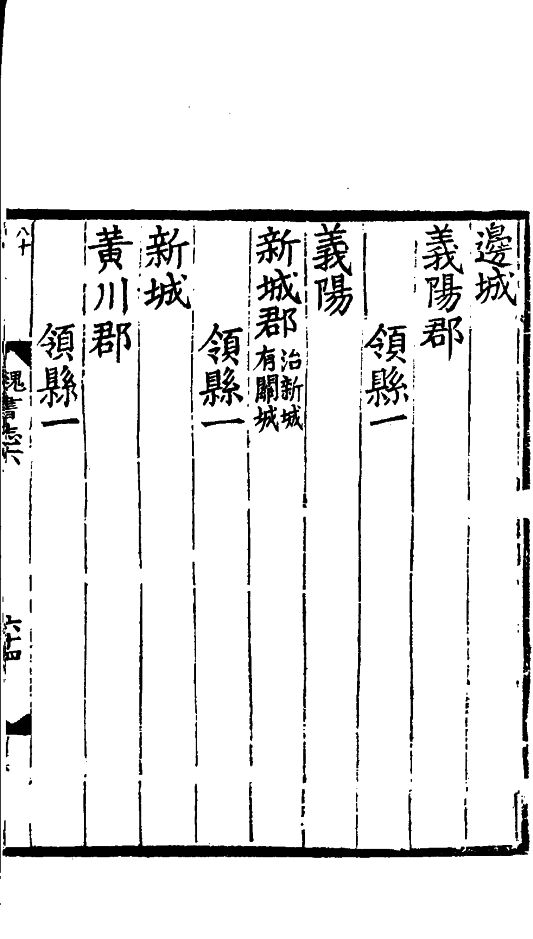 邊城
義陽郡
領縣一
義陽
新城郡治新城有關城
領縣一
新城
黃川郡
領縣一
八十
魏書志六
六十四